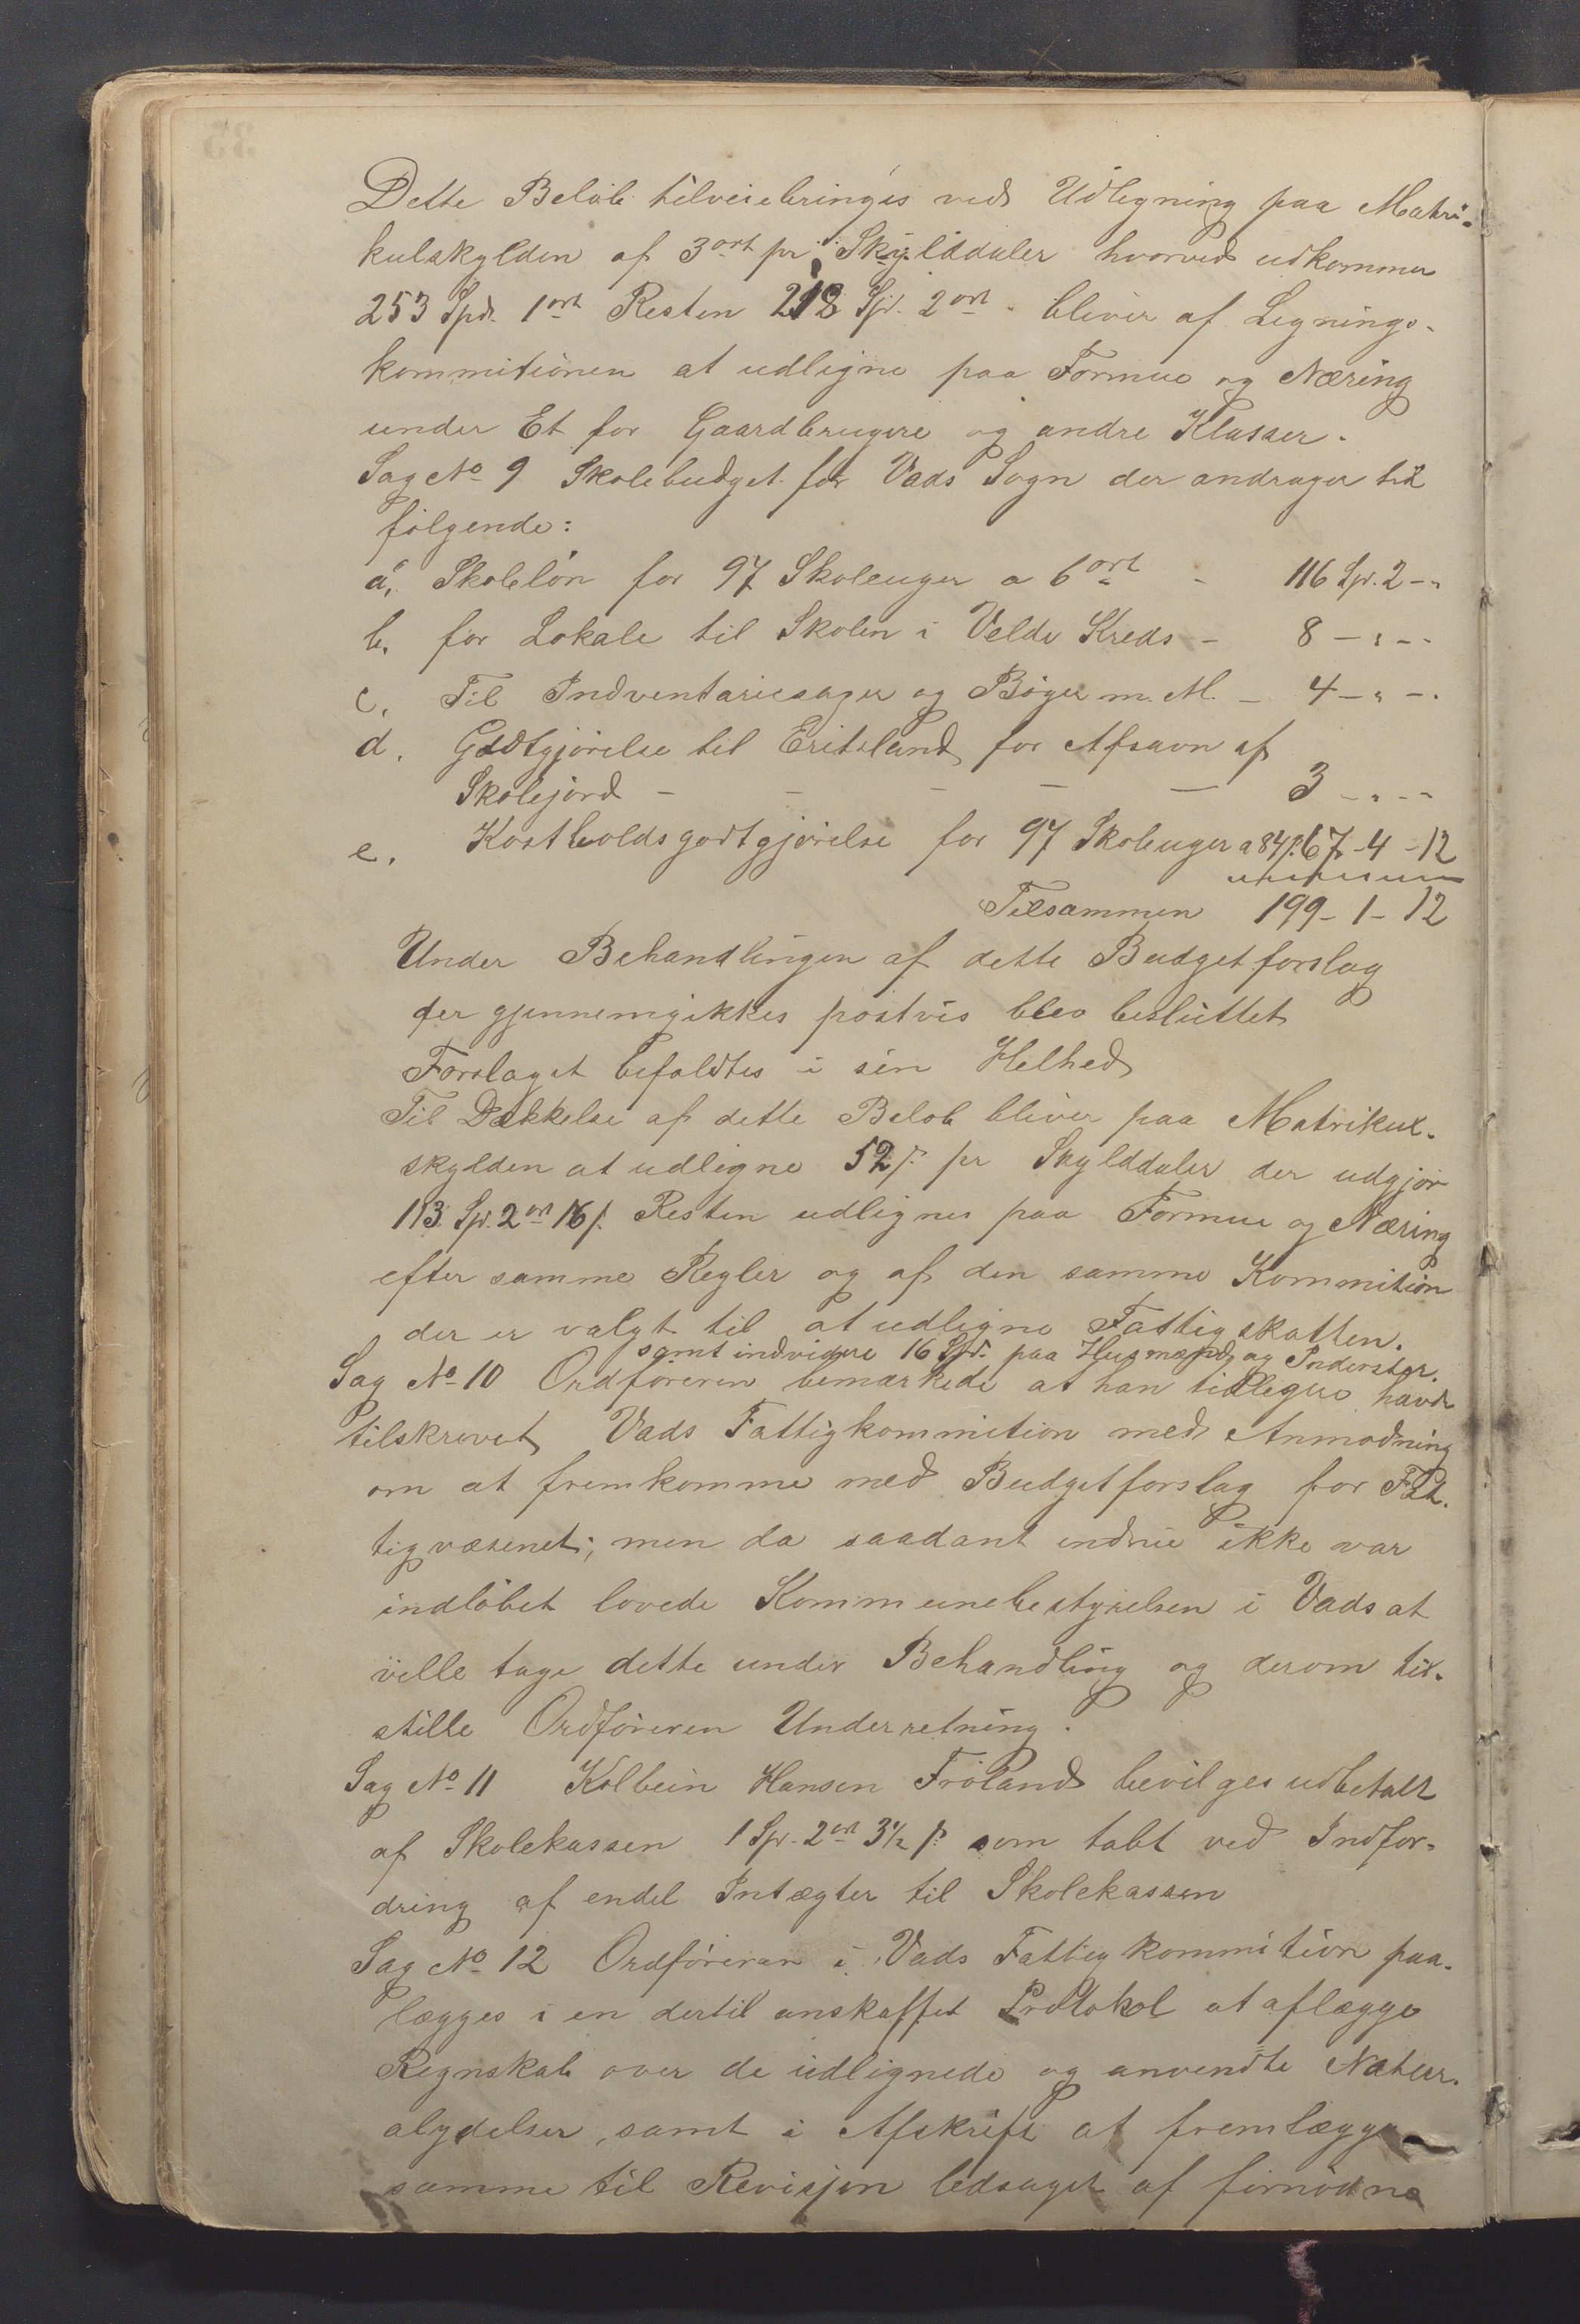 Dette Beløb tilveiebringes ved Udlegning paa Matri-
kulskylden af 3 ort pr Skylddaler hvorved udkommer
253 Spd. 1 ort Resten 218 Spd. 2 ort bliver af Lignings-
kommitionen at udligne paa Formue og Næring
under Et for Gaardbrugere og andre Klasser.
Sag No 9 Skolebudget for Vads Sogn der andrager til
følgende:
a, Skoleløn for 97 Skoleuger a 6 ort - 116 Sp. 2 - „
b, for Lokale til Skolen i Velde Kreds - 8 - „ - -
c, Til Indventariesager og Bøger m. M. - 4 - „ - .
d. Godtgjørelse til Eritsland for Afsavn af
Skolejord - - - - - 3 - „ - -
e. Kostholdsgodtgjørelse for 97 Skoleuger a 84 s. 67 - 4 - 12
Tilsammen 199 - 1 - 12
Under Behandlingen af dette Budgetforslag
der gjennemgikkes postvis blev besluttet
Forslaget befaldtes i sin Helhed
Til Dækkelse af dette Beløb bliver paa Matrikul-
skylden at udligne 52 s. pr Skylddaler der udgjør
113 Sp. 2 ort 16 s. Resten udlignes paa Formue og Næring
efter samme Regler og af den samme Kommition
der er valgt til at udligne Fattigskatten.
samt indvidere 16 Spd. paa Husmænd og Inderster.
Sag No 10 Ordføreren bemærkede at han tidligere havde
tilskrevet Vads Fattigkommition med Anmodning
om at fremkomme med Budgetforslag for Fat-
tigvæsenet; men da saadant endnu ikke var
indløbet lovede Kommunebestyrelsen i Vads at
ville tage dette under Behandling og derom til-
stille Ordføreren Underretning.
Sag No 11 Kolbein Hansen Frøland bevilges udbetalt
af Skolekassen 1 Sp. 2 ort 3½ s. som tabt ved Indfor-
dring af endel Intægter til Skolekassen
Sag No 12 Ordføreren i Vads Fattigkommition paa-
lægges i en dertil anskaffet Protokol at aflægge
Regnskab over de udlignede og anvendte Natur-
alydelser, samt i Afskrift at fremlægge
samme til Revisjon ledsaget af fornødne